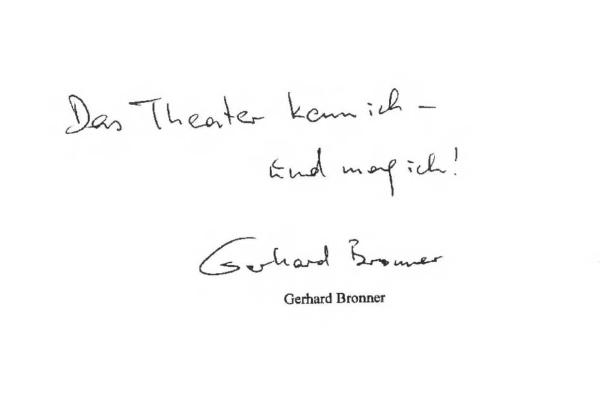 Das Theater kenn ich –
und mag ich!
Gerhard Bronner
Gerhard Bronner